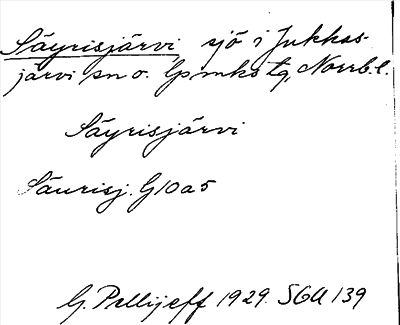 Säyrisjärvi, sjö i Jukkas-
järvi sn o. lpmks tg, Norrb. l.
Säyrisjärvi
Säurisj. G10a5
G. Pellijeff 1929. SGU 139